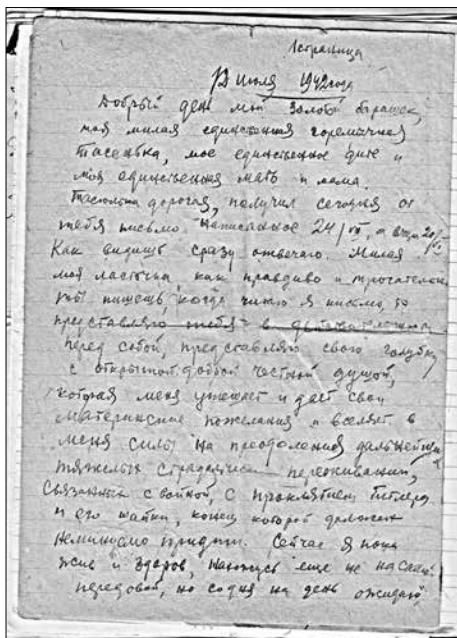 1 страница
12 июля 1942 года
Добрый день мой золотой барашек,
моя милая единственная горемычная
Тасенька, мое единственное дите и
моя единственная мать и мама.
Тасенька дорогая, получил сегодня от
тебя письмо написанное 24/VI, а вчера 20/VI
Как видишь сразу отвечаю. Милая
моя ласточка как правдиво и трогательно
ты пишешь, когда читаю я письмо, то
представляю тебя в
перед собой, представляю свою голубку
с открытой доброй честной душой,
которая меня утешает и дает свои
материнские пожелания и вселяет в
меня силы на преодоления дальнейших
тяжелых страданий переживаний,
связанных с войной, с проклятием Гитлера
и его шайки, конец которой должен
неминуемо придти. Сейчас я пока
жив и здоров, нахожусь еще не на самой
передовой, но со дня на день ожидаю,